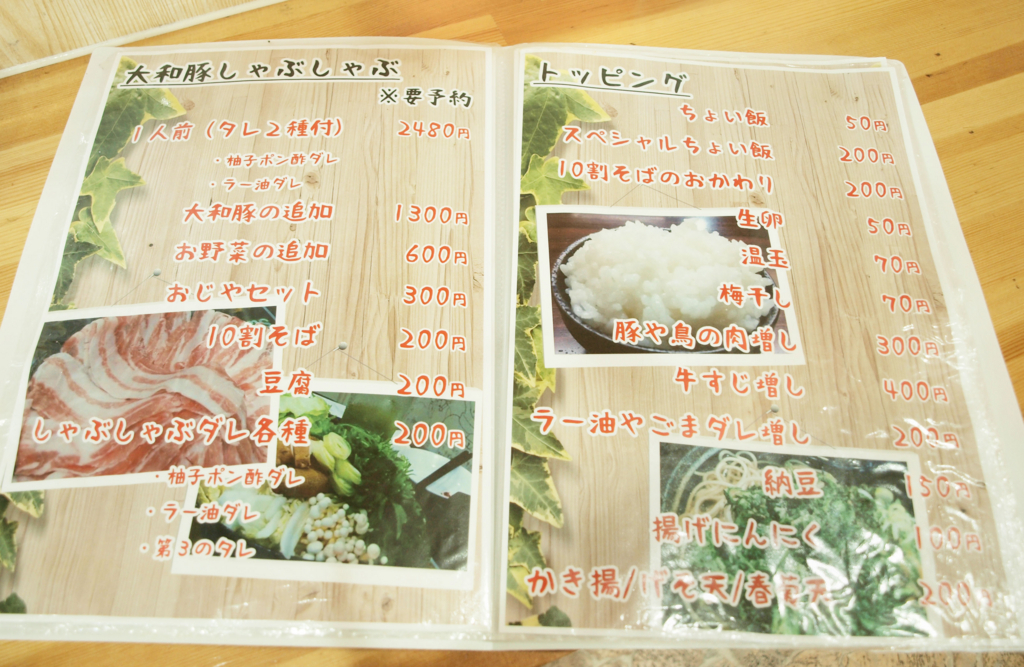 大和豚しゃぶしゃぶ
※要予約
1人前（タレ２種付） 2480円
・柚子ポン酢ダレ
・ラー油ダレ
大和豚の追加 1300円
お野菜の追加 600円
おじやセット 300円
10割そば 200円
豆腐 200円
しゃぶしゃぶダレ各種 200円
・柚子ポン酢ダレ
・ラー油ダレ
・第３のタレ
トッピング
ちょい飯 50円
スペシャルちょい飯 200円
10割そばのおかわり 200円
生卵 50円
温玉 70円
梅干し 70円
豚や鳥の肉増し 300円
牛すじ増し 400円
ラー油やごまダレ増し 200円
納豆 150円
揚げにんにく 100円
かき揚/げそ天/春菊天 200円